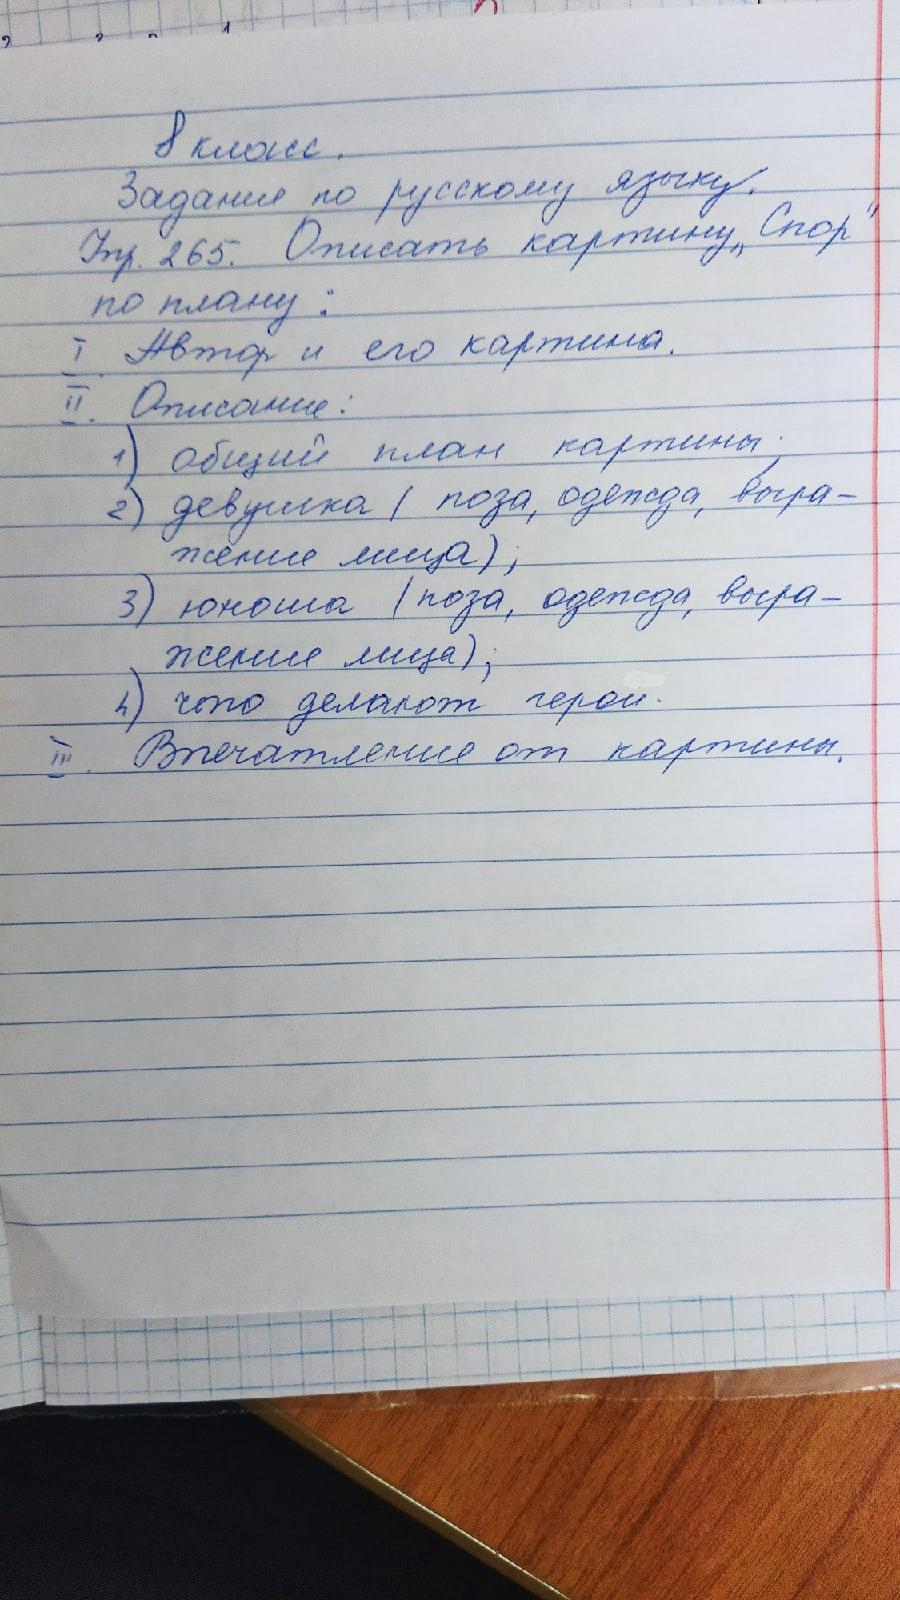 8 класс.
Задание по русскому языку.
Упр. 265. Описать картину „Спор"
по плану:
I. Автор и его картина.
II. Описание:
1) общий план картины;
2) девушка (поза, одежда, выра-
жение лица);
3) юноша (поза, одежда, выра-
жение лица);
4) что делают герои.
III. Впечатление от картины.